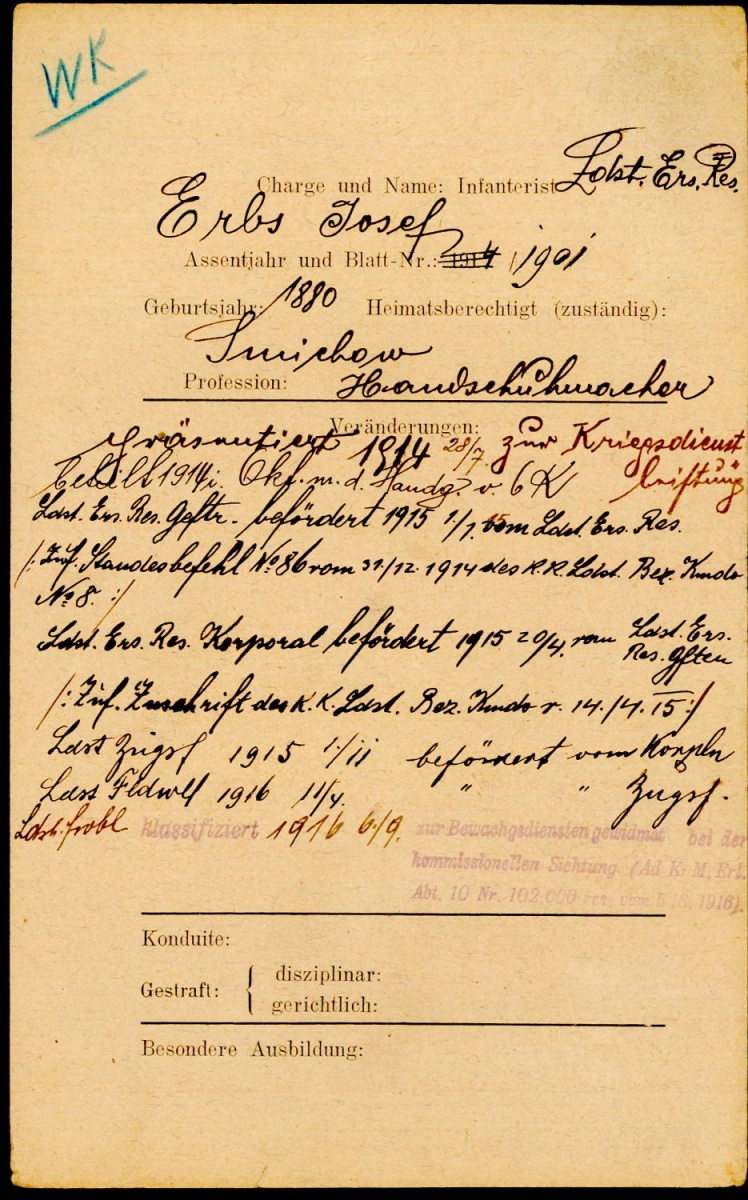 WK
Charge und Name: Infanterist Ldst. Ers. Res.
Erbs Josef
Assentjahr und Blatt-Nr.: 1914 / 1901
Geburtsjahr: 1880 Heimatsberechtigt (zuständig):
Smichow
Profession: Handschuhmacher
Veränderungen:
präsentiert 1914 28/7. zur Kriegsdienst
1914 m. d. v. 6 K leistung
Ldst. Ers. Res. Gftr. befördert 1915 1/1. vom Ldst. Ers. Res.
/: Zuf. Standesbefehl No 86 vom 31/12. 1914 des k. k. Ldst. Bez. Kmdo
No 8. :/
Ldst. Ers. Res. Korporal befördert 1915 20/4. vom Ldst. Ers.
Res. Gften
/: Zuf. Zuschrift des k. k. Ldst. Bez. Kmdo v. 14./4. 15 :/
Ldst Zugsf 1915 1./11 befördert vom Korpln
Ldst Fldwbl 1916 11/4. " " Zugsf.
klassifiziert 1916 6./9. zur Bewachgsdiensten gewidmet bei der
kommissionellen Sichtung. (Ad K. M. Erl.
Abt. 10 Nr. 102.000 res. vom 5./8. 1916).
Konduite:
Gestraft: { disziplinar:
gerichtlich:
Besondere Ausbildung: